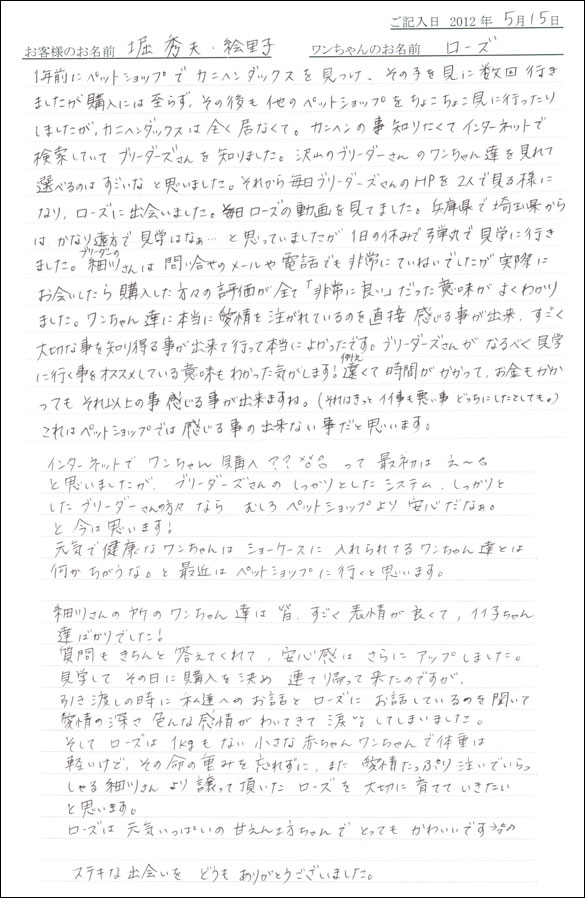 ご記入日 2012年 5月15日
お客様のお名前 堀 秀夫・絵里子 ワンちゃんのお名前 ローズ
1年前にペットショップで カニヘンダックスを見つけ、その子を見に数回行き
ましたが購入には至らず、その後も他のペットショップをちょこちょこ見に行ったり
しましたが、カニヘンダックスは全く居なくて。カニヘンの事知りたくてインターネットで
検索していてブリーダーズさんを知りました。沢山のブリーダーさんのワンちゃん達を見れて
選べるのはすごいなと思いました。それから毎日ブリーダーズさんのHPを2人で見る様に
なり、ローズに出会いました。毎日ローズの動画を見てました。兵庫県で埼玉県から
は かなり遠方で見学はなぁ…と思っていましたが1日の休みで弾丸で見学に行き
ました。ブリーダーの細川さんは問い合せのメールや電話でも非常にていねいでしたが実際に
お会いしたら購入した方々の評価が全て「非常に良い」だった意味がよくわかり
ました。ワンちゃん達に本当に愛情を注がれているのを直接感じる事が出来、すごく
大切な事を知り得る事が出来て行って本当によかったです。ブリーダーズさんがなるべく見学
に行く事をオススメしている意味もわかった気がします!例え遠くて時間がかかって、お金もかか
っても それ以上の事感じる事が出来ますね。(それはきっと イイ事も悪い事 どっちにしたとしても。)
これはペットショップでは感じる事の出来ない事だと思います。
インターネットで ワンちゃん購入?? って 最初は え〜
と思いましたが、ブリーダーズさんの しっかりとしたシステム、しっかりと
した ブリーダーさんの方々 なら むしろ ペットショップより 安心だなぁ。
と 今は思います!
元気で健康なワンちゃんは ショーケースに 入れられてるワンちゃん達とは
何かちがうな。と 最近は ペットショップに行くと思います。
細川さんの所のワンちゃん達は皆、すごく表情が良くて、イイ子ちゃん
達ばかりでした!
質問もきちんと答えてくれて、安心感は さらにアップしました。
見学して その日に購入を決め 連れて帰って来たのですが、
引き渡しの時に私達へのお話と ローズに お話しているのを聞いて
愛情の深さ 色んな感情が わいてきて 涙 してしまいました。
そして ローズは 1kgもない 小さな赤ちゃんワンちゃんで 体重は
軽いけど、その命の重みを忘れずに、また 愛情たっぷり注いでいらっ
しゃる細川さんより譲って頂いた ローズを 大切に育てていきたい
と思います。
ローズは 元気いっぱいの甘えん坊ちゃんで とっても かわいいです
ステキな出会いを どうも ありがとうございました。